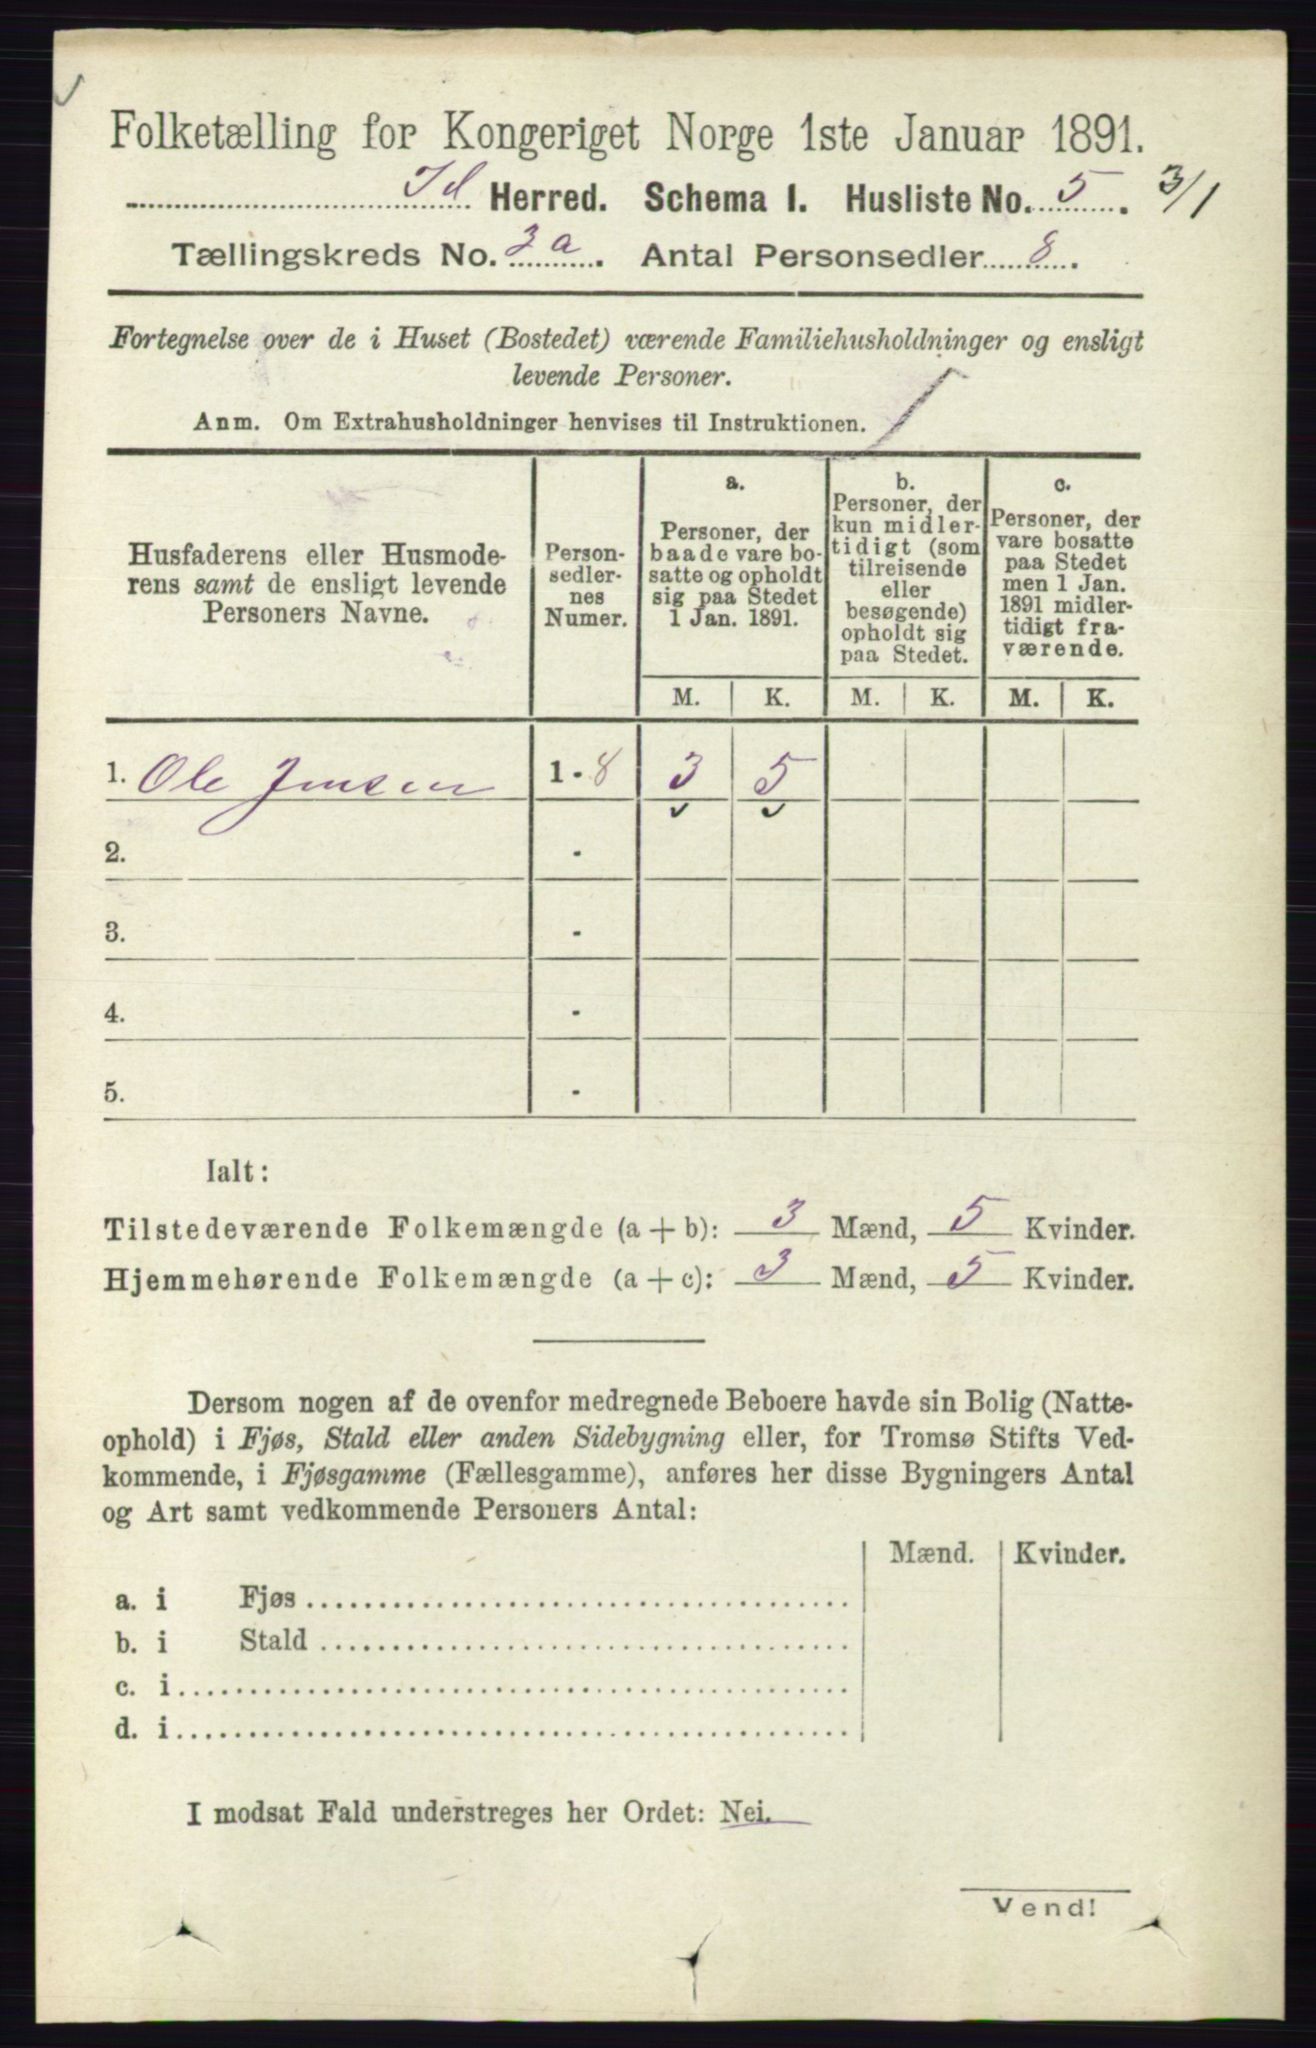 Folketælling for Kongeriget Norge 1ste Januar 1891.
Id Herred. Schema I. Husliste No. 5. 3/1
Tællingskreds No. 3a. Antal Personsedler 8.
Fortegnelse over de i Huset (Bostedet) værende Familiehusholdninger og ensligt
levende Personer.
Anm. Om Extrahusholdninger henvises til Instruktionen.
Husfaderens eller Husmode-
rens samt de ensligt levende
Personers Navne.
Person-
sedler-
nes
Numer.
a.
Personer, der
baade vare bo-
satte og opholdt
sig paa Stedet
1 Jan. 1891.
b.
Personer, der
kun midler-
tidigt (som
tilreisende
eller
besøgende)
opholdt sig
paa Stedet.
c.
Personer, der
vare bosatte
paa Stedet
men 1 Jan.
1891 midler-
tidigt fra-
værende.
M. K. M. K. M. K.
1. Ole Jensen 1 - 8 3 5
2. -
3. -
4. -
5. -
Ialt:
Tilstedeværende Folkemængde (a + b): 3 Mænd, 5 Kvinder.
Hjemmehørende Folkemængde (a + c): 3 Mænd, 5 Kvinder.
Dersom nogen af de ovenfor medregnede Beboere havde sin Bolig (Natte-
ophold) i Fjøs, Stald eller anden Sidebygning eller, for Tromsø Stifts Ved-
kommende, i Fjøsgamme (Fællesgamme), anføres her disse Bygningers Antal
og Art samt vedkommende Personers Antal:
Mænd. Kvinder.
a. i Fjøs
b. i Stald
c. i
d. i
I modsat Fald understreges her Ordet: Nei.
Vend!